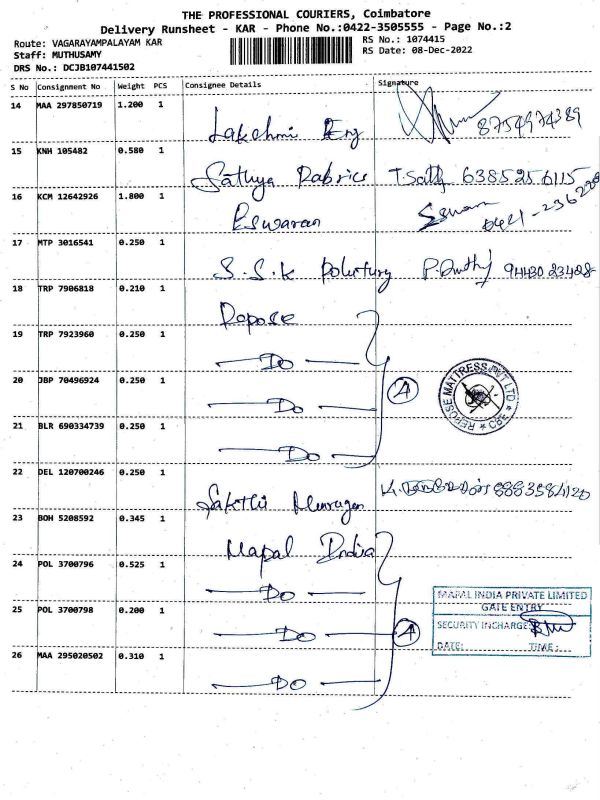 THE PROFESSIONAL COURIERS, Coimbatore
Delivery Runsheet - KAR - Phone No.:0422-3505555 - Page No.:2
Route: VAGARAYAMPALAYAM KAR
RS No.: 1074415
Staff: MUTHUSAMY
RS Date: 08-Dec-2022
DRS No.: DCJB107441502
S No Consignment No Weight PCS Consignee Details Signature
14 MAA 297850719 1.200 1 Lakshmi Eng 8754974389
15 KNH 105482 0.580 1 Sathya Fabrics T.Sath 6385256115
16 KCM 12642926 1.800 1 Eswaran
17 MTP 3016541 0.250 1 S.S.K 94430 23428
18 TRP 7906818 0.210 1 Repose
19 TRP 7923960 0.250 1 Do
20 JBP 70496924 0.250 1 Do A
REPOSE MATTRESS PVT LTD CBE
21 BLR 690334739 0.250 1 Do
22 DEL 120700246 0.250 1 Sakthi Murugan 8883584120
23 BOH 5208592 0.345 1 Mapal India
24 POL 3700796 0.525 1 Do
MAPAL INDIA PRIVATE LIMITED
GATE ENTRY
25 POL 3700798 0.200 1 Do A
SECURITY INCHARGE:
DATE: TIME:
26 MAA 295020502 0.310 1 Do